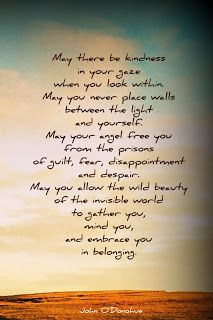 May there be kindness
in your gaze
when you look within.
May you never place walls
between the light
and yourself.
May your angel free you
from the prisons
of guilt, fear, disappointment
and despair.
May you allow the wild beauty
of the invisible world
to gather you,
mind you,
and embrace you
in belonging.
John O'Donohue